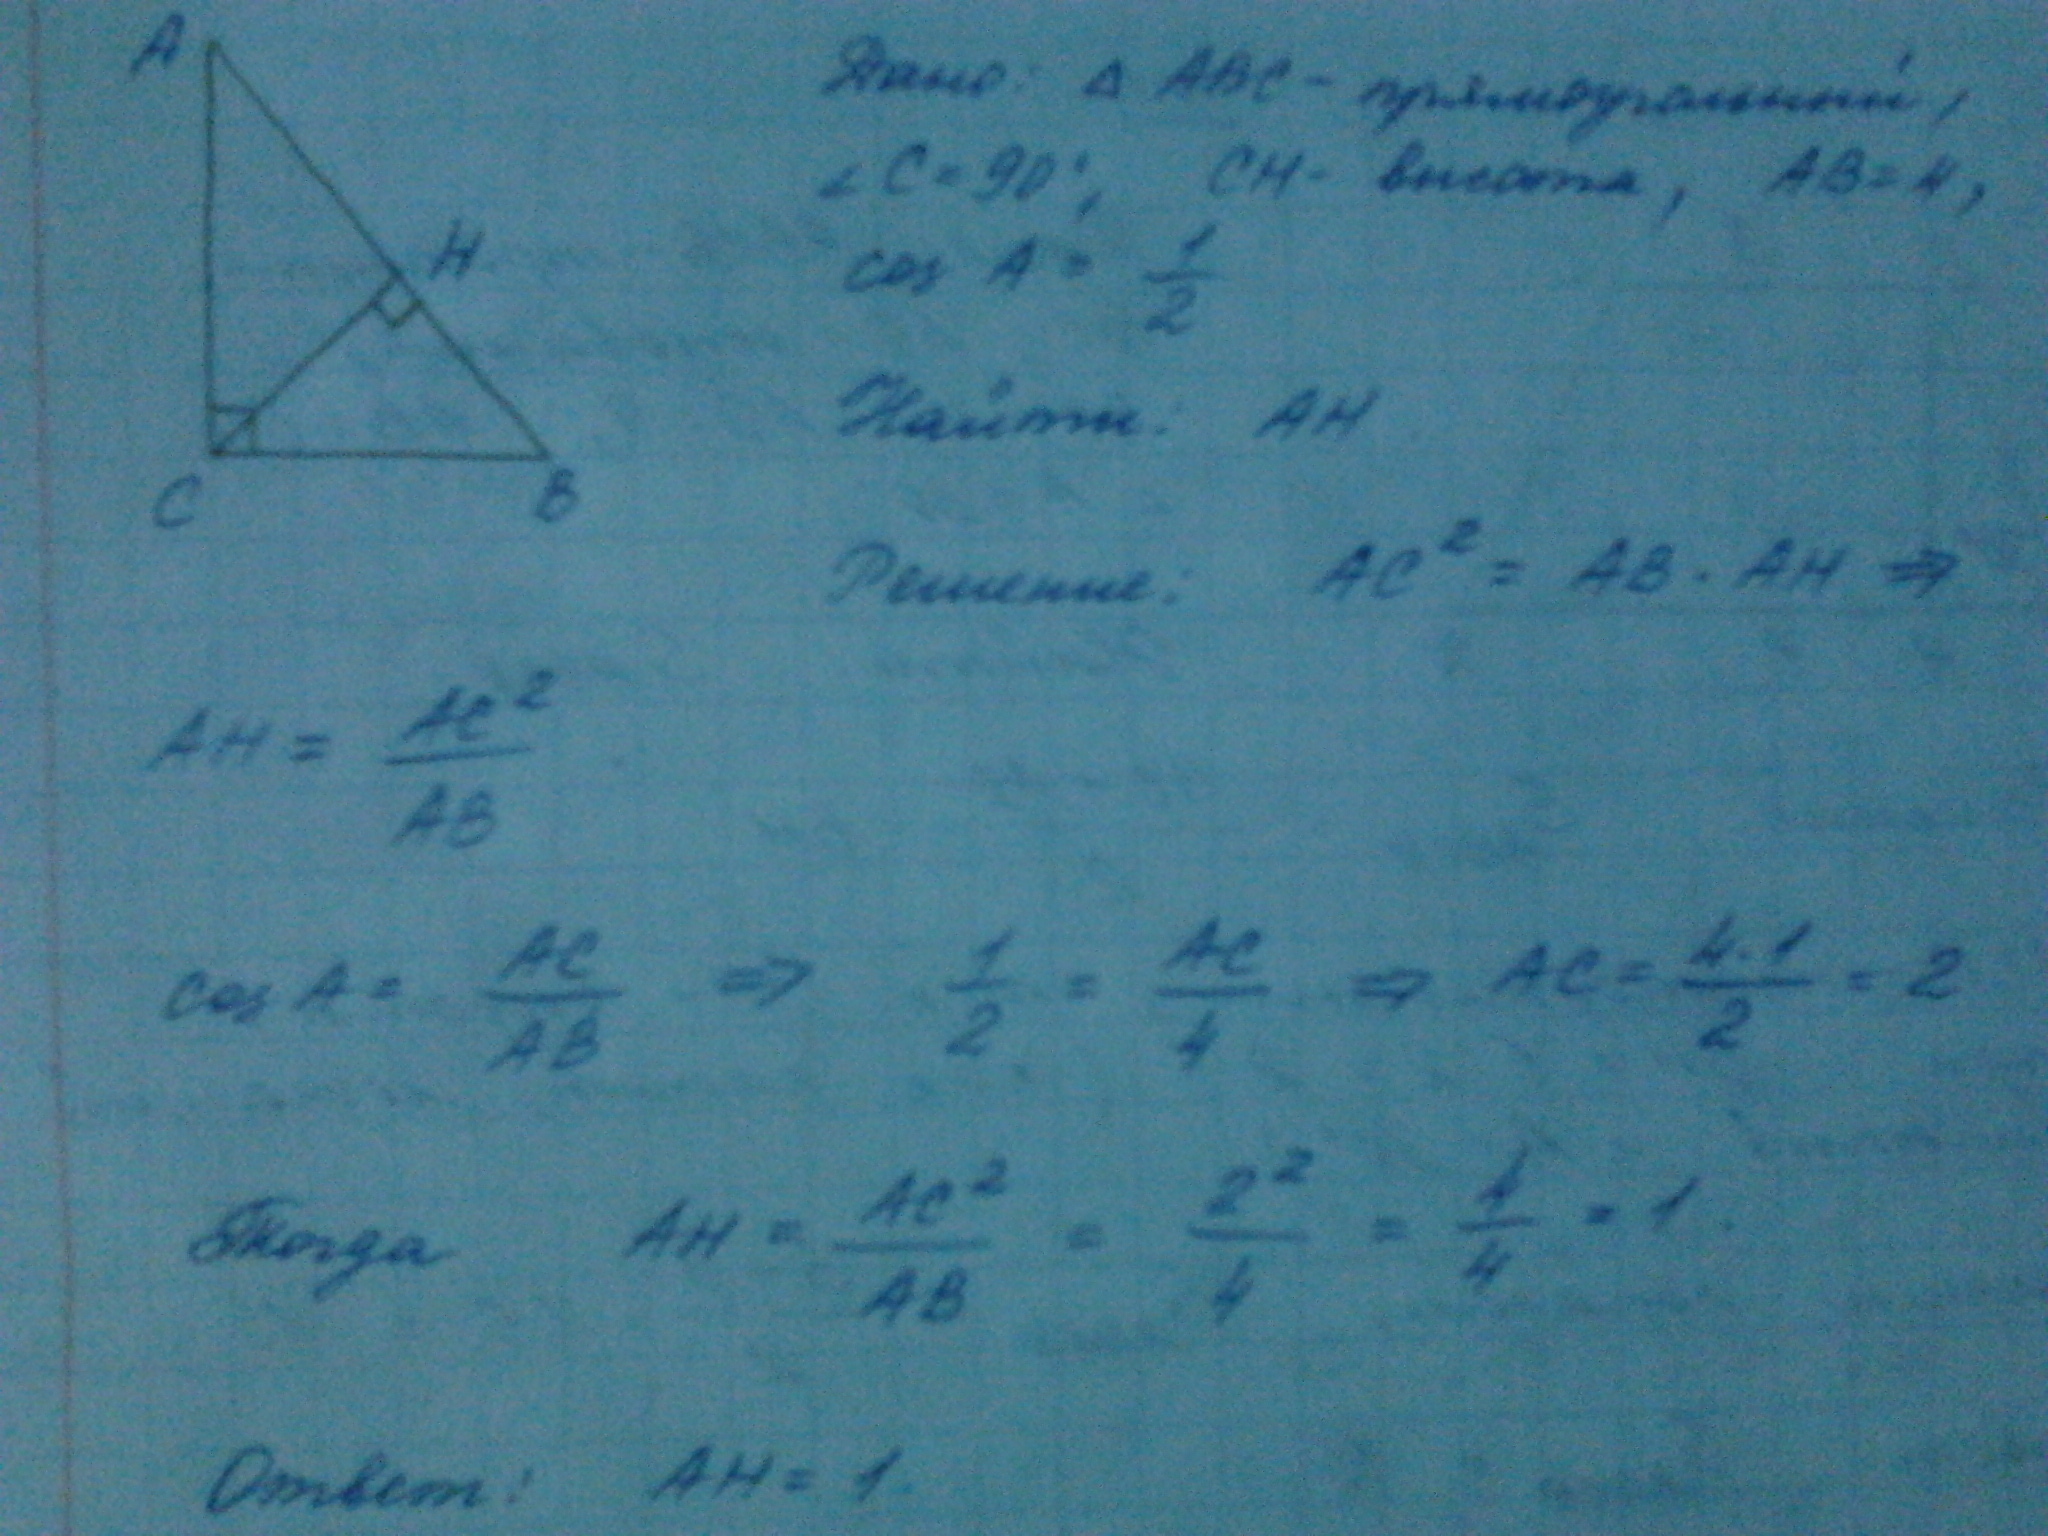 A
H
C
B
Дано: Δ ABC - прямоугольный,
∠ C = 90°, CH - высота, AB = 4,
cos A = 1/2
Найти: AH
Решение: AC² = AB · AH ⇒
AH = AC²/AB
cos A = AC/AB ⇒ 1/2 = AC/4 ⇒ AC = 4·1/2 = 2
Тогда AH = AC²/AB = 2²/4 = 4/4 = 1.
Ответ: AH = 1.